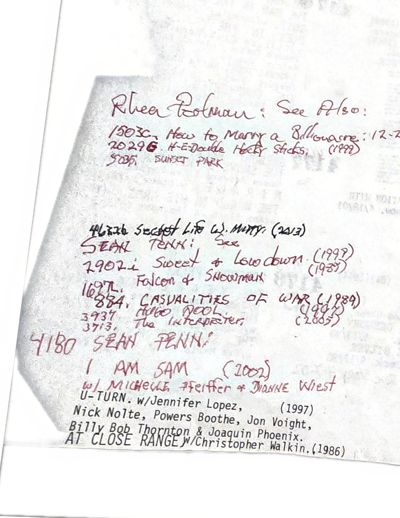 Rhea Perlman: See Also:
1503c, How to Marry a Billionaire: 12-2
2029G H-E-Double Hocky Sticks, (1999)
SUNSET PARK
Secret Life W. Mitty. (2013)
SEAN PENN: See
2902i Sweet & Lowdown. (1999)
Falcon & Snowman
884, CASUALITIES OF WAR (1989)
3937 HUGO POOL. (1997)
3713, The Interpreter, (2005)
4180 SEAN PENN:
I AM SAM (2002)
w/ MICHELLE Pfeiffer & DIANNE Wiest
U-TURN. w/Jennifer Lopez, (1997)
Nick Nolte, Powers Boothe, Jon Voight,
Billy Bob Thornton & Joaquin Phoenix.
AT CLOSE RANGE, w/Christopher Walkin.(1986)